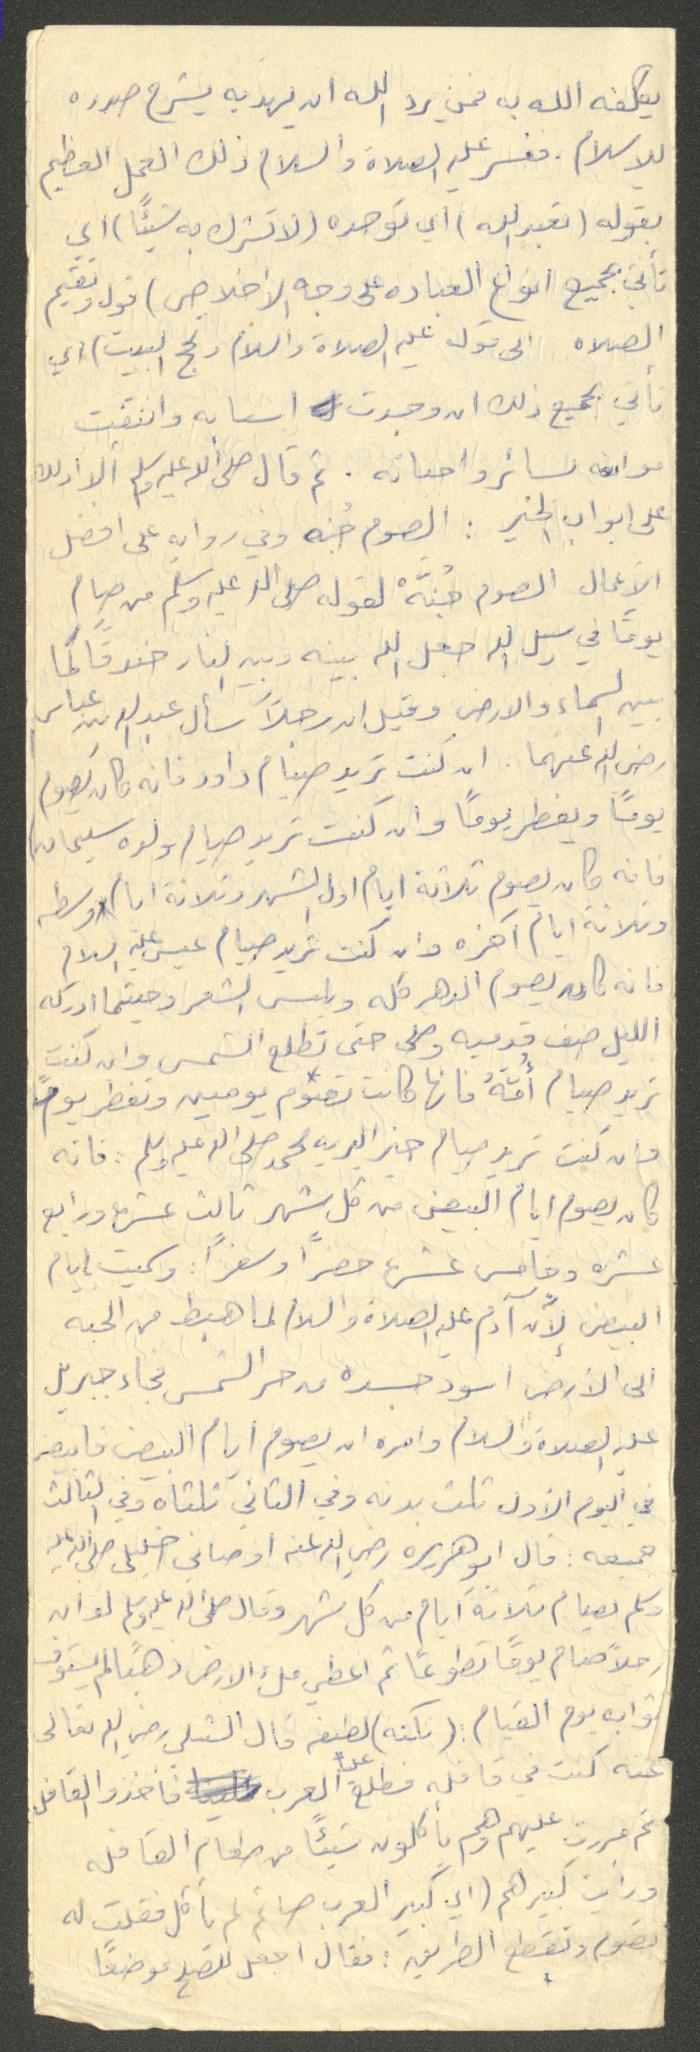 يكلفه الله به فمن يرد الله ان يهديه يشرح صدره
للاسلام. ففسر عليه الصلاة والسلام ذلك العمل العظيم
بقوله (تعبد الله) أي توحده (لا تشرك به شيئًا) اي
تأتي بجميع انواع العباده على وجه الاخلاص) قوله وتقيم
الصلاه الى قوله عليه الصلاة والسلام وتحج البيت) اي
تأتي بجميع ذلك ان وجدت اسبابه وانتفت
موانعه لسائر واجباته. ثم قال صلى الله عليه وسلم ألا ادلك
على ابواب الخير: الصوم جُنه وفي روايه على افضل
الاعمال الصوم جُنَّهْ لقوله صلى الله عليه وسلم من صام
يومًا في سبيل الله جعل الله بينه وبين النار خندقًا كما
بين السماء والارض وقيل ان رجلاً سأل عبد الله بن عباس
رضي الله عنهما. ان كنت تريد صيام داود فانه كان يصوم
يومًا ويفطر يومًا وان كنت تريد صيام ولده سليمان
فانه كان يصوم ثلاثة ايام اول الشهر وثلاثة ايام وسطه
وثلاثة ايام آخره وان كنت تريد صيام عيسى عليه السلام
فانه كان يصوم الدهر كله ويلبس الشعر وحيثما ادركه
الليل صف قدميه وصلى حتى تطلع الشمس وان كنت
تريد صيام أُمَّهُ فانها كانت تصوم يومين وتفطر يومًا
وان كنت تريد صيام خير البريه محمد صلى الله عليه وسلم: فانه
كان يصوم ايام البيض من كل شهر ثالث عشره ورابع
عشره وخامس عشره حضرًا وسفرًا: وسميت بأيام
البيض لأن آدم عليه الصلاة والسلام لما هبط من الجنه
الى الأرض اسود جسده من حر الشمس فجاء جبريل
عليه الصلاة والسلام وامره ان يصوم أيام البيض فابيض
في اليوم الاول ثلث بدنه وفي الثاني ثلثاه وفي الثالث
جميعه: قال ابو هريره رضي الله عنه أوصاني خليلي صلى الله عليه
وسلم بصيام ثلاثة أيام من كل شهر وقال صلى الله عليه وسلم لو ان
رجلاً صام يومًا تطوعًا ثم اعطي ملء الارض ذهبًا لم يستوف
ثوابه يوم القيام: (نكته) لطيفه قال الشبلي رضي الله تعالى
عنه كنت في قافله فطلع علينا العرب فأخذوا القافله
ثم مررت عليهم وهم يأكلون شيئًا من طعام القافله
ورأيت كبيرهم (اي كبير العرب صائم لم يأكل فقلت له
تصوم وتقطع الطريق: فقال اجعل للصلح موضعًا